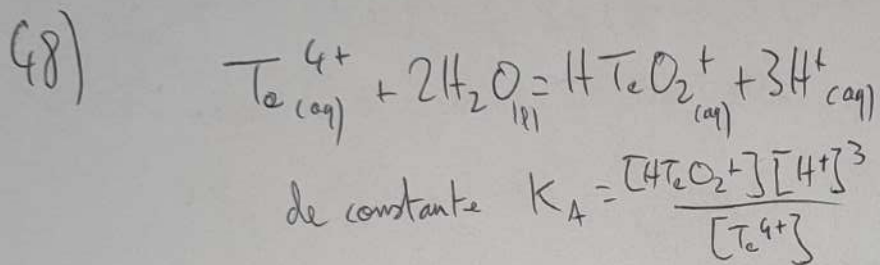 48) Te⁴⁺(aq) + 2H₂O(l) = HTeO₂⁺(aq) + 3H⁺(aq)
de constante K_A = [HTeO₂⁺][H⁺]³ / [Te⁴⁺]